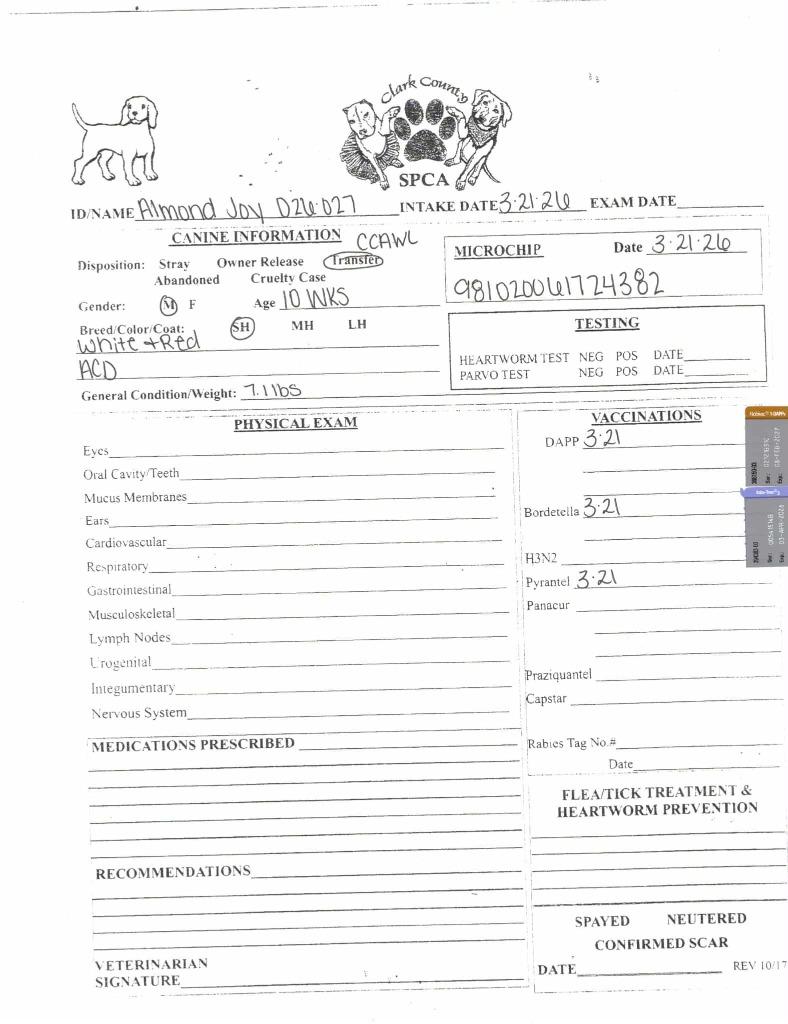 Clark County
SPCA
ID/NAME Almond Joy D26-027 INTAKE DATE 3-21-26 EXAM DATE
CANINE INFORMATION CCAWL
Disposition: Stray Owner Release Transfer
Abandoned Cruelty Case
Gender: M F Age 10 WKS
Breed/Color/Coat: SH MH LH
White + Red
ACD
General Condition/Weight: 7.1 lbs
MICROCHIP Date 3-21-26
981020061724382
TESTING
HEARTWORM TEST NEG POS DATE
PARVO TEST NEG POS DATE
PHYSICAL EXAM
Eyes
Oral Cavity/Teeth
Mucus Membranes
Ears
Cardiovascular
Respiratory
Gastrointestinal
Musculoskeletal
Lymph Nodes
Urogenital
Integumentary
Nervous System
MEDICATIONS PRESCRIBED
RECOMMENDATIONS
VETERINARIAN
SIGNATURE
VACCINATIONS
DAPP 3-21
Bordetella 3-21
H3N2
Pyrantel 3-21
Panacur
Praziquantel
Capstar
Rabies Tag No.#
Date
FLEA/TICK TREATMENT &
HEARTWORM PREVENTION
SPAYED NEUTERED
CONFIRMED SCAR
DATE
REV 10/17